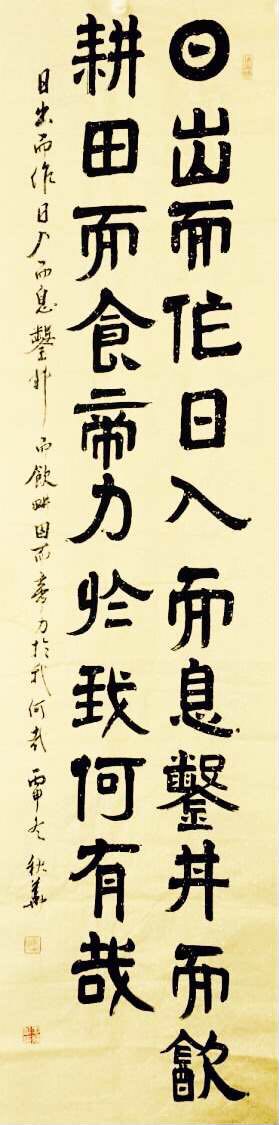 日出而作日入而息鑿井而飲
耕田而食帝力於我何有哉
日出而作日入而息鑿井而飲耕田而食帝力於我何哉丙申冬秋華